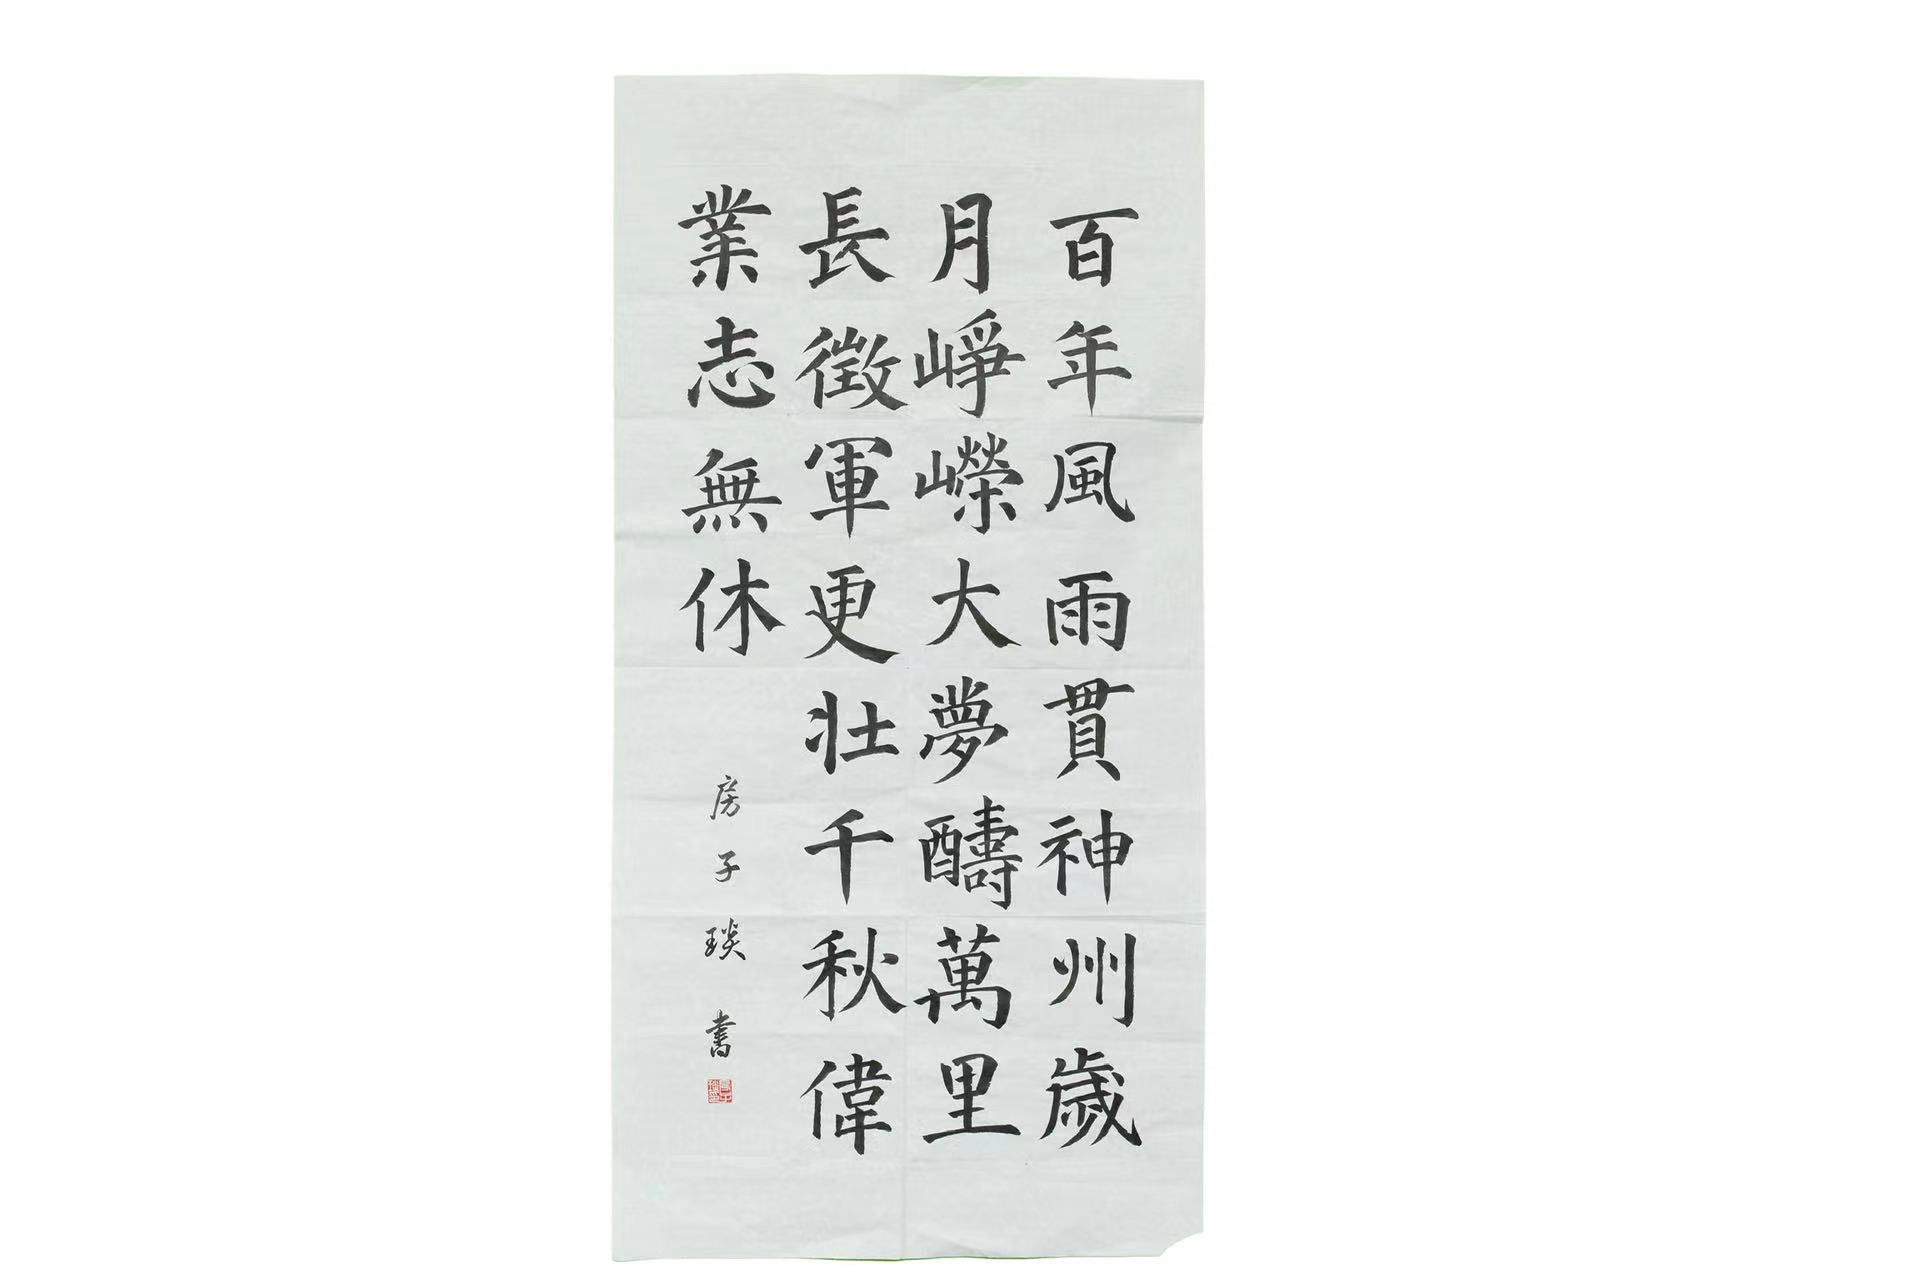 百年風雨貫神州歲
月崢嶸大夢醻萬里
長徵軍更壯千秋偉
業志無休
房子琰書